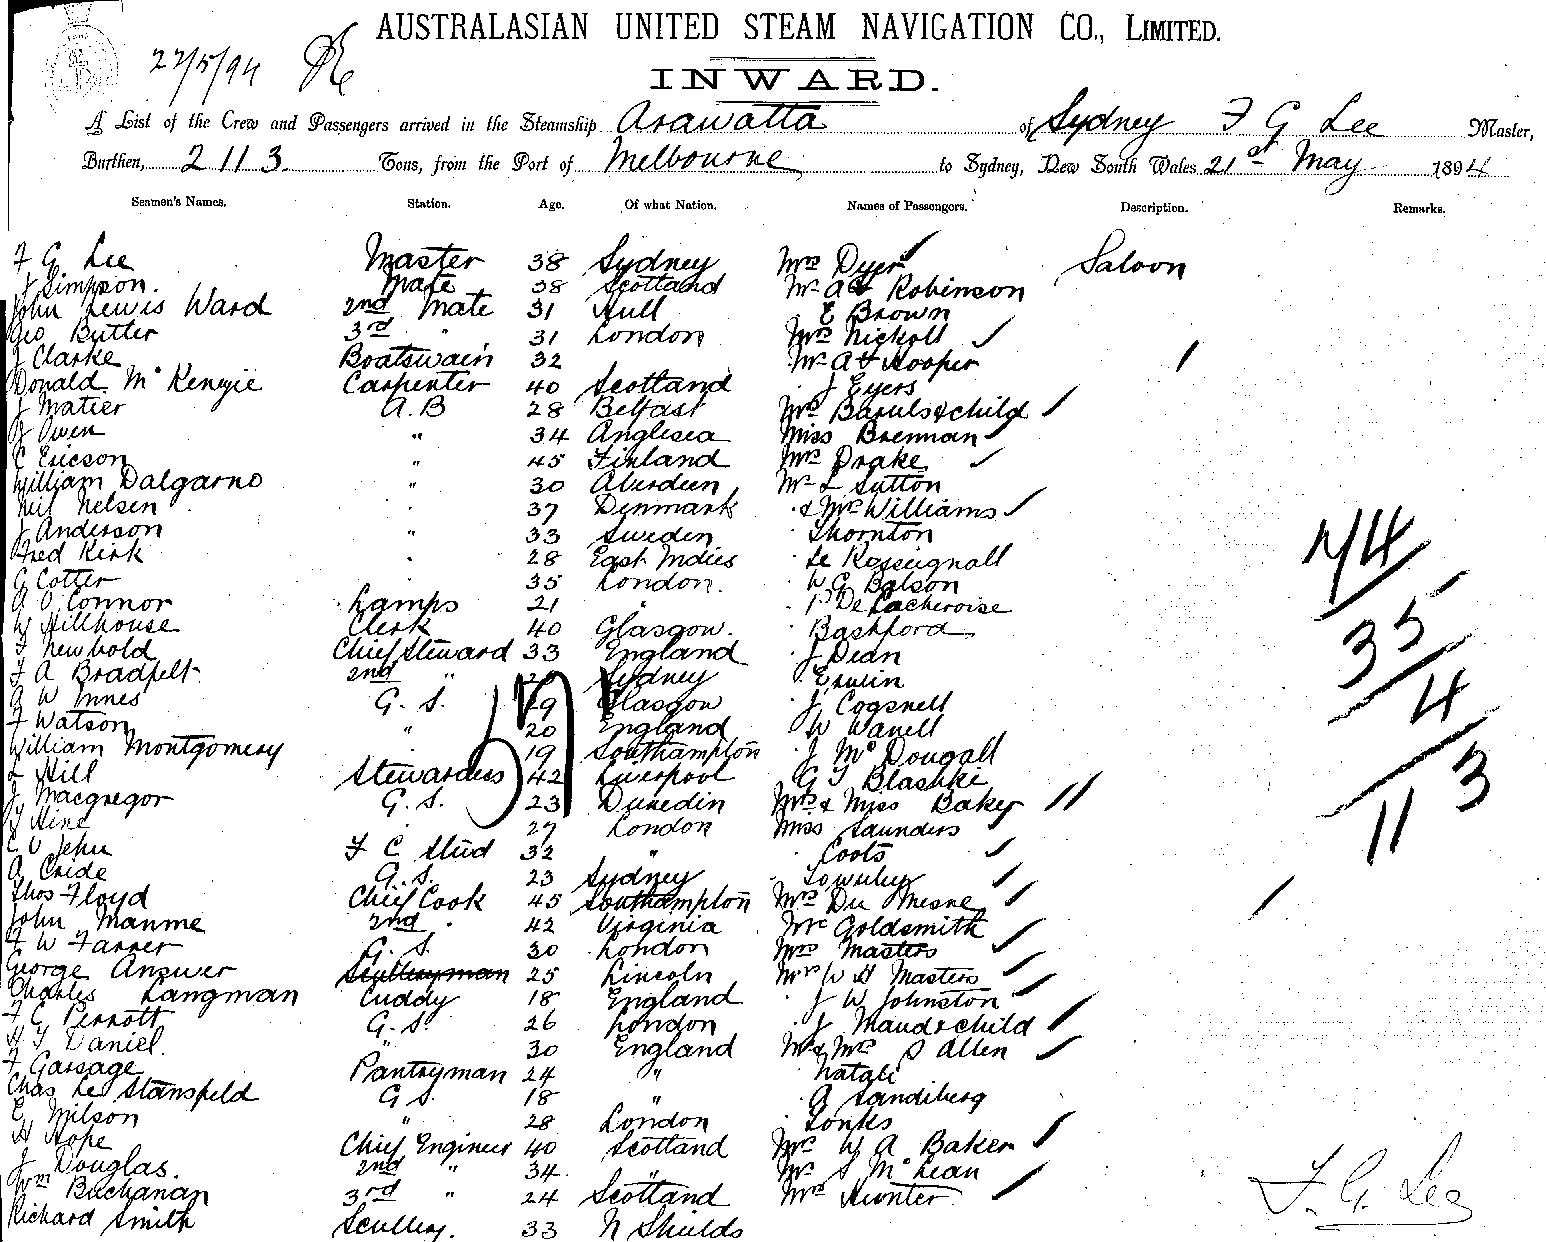 27/5/94
AUSTRALASIAN UNITED STEAM NAVIGATION CO., LIMITED.
INWARD.
A List of the Crew and Passengers arrived in the Steamship Arawatta of Sydney F G Lee Master,
Burthen, 2113 Tons, from the Port of Melbourne to Sydney, New South Wales 21st May 1894
Seamen's Names. Station. Age. Of what Nation. Names of Passengers. Description. Remarks.
F G Lee Master 38 Sydney Mrs Dyer Saloon
J Simpson. Mate 38 Scotland Mr A Robinson
John Lewis Ward 2nd Mate 31 Hull E Brown
Geo Butler 3rd " 31 London Mrs Nicholl
J Clarke Boatswain 32 Mr A H Hooper
Donald McKenzie Carpenter 40 Scotland J Eyers
J Matier A.B 28 Belfast Mrs & child
Owen " 34 Anglisea Miss Brennan
C Ericson " 45 Finland Mrs Drake
William Dalgarno " 30 Aberdeen Mr L Sutton
Neil Nelsen " 37 Denmark & Mrs Williams
J Anderson " 33 Sweden Thornton
Fred Kirk " 28 East Indies Le Rosseignall
G Cotter 35 London. W G Balson
O'Connor Lamps 21 " De Lacheroise
W Hillhouse Clerk 40 Glasgow. Bashford
F Newbold Chief Steward 33 England J Dean
F A Bradfelt 2nd " Sydney Erwin
A W Innes G. S. 19 Glasgow J Cogsnell
F Watson " 20 England W Wanell
William Montgomery 19 Southampton J McDougall
L Hill Stewardess 42 Liverpool G T Blashki
J Macgregor G. S. 23 Dunedin Mrs & Miss Baker
Hine 27 London Miss Saunders
John F C Stud 32 " Coots
A Cride G. S. 23 Sydney
Thos Floyd Chief Cook 45 Southampton Mrs Du Mesne
John Manme 2nd " 42 Virginia Mr Goldsmith
F W Farrer G. S. 30 London Mrs Masters
George Answer Sculleryman 25 Lincoln Mrs W H Masters
Charles Langman Cuddy 18 England J W Johnston
F C Perrott G. S. 26 London J Maud & child
H T Daniel. " 30 England Mr & Mrs S Allen
F Garsage Pantryman 24 " Natali
Chas Le Stansfeld G S. 18 " A Sandiberg
E Milson " 28 London Tonks
H Hope Chief Engineer 40 Scotland Mr W A Baker
J Douglas. 2nd " 34 " Mr S McLean
Wm Buchanan 3rd " 24 Scotland Mrs Hunter
Richard Smith Scullery. 33 N Shields
57
74
35
4
113
F. G. Lee